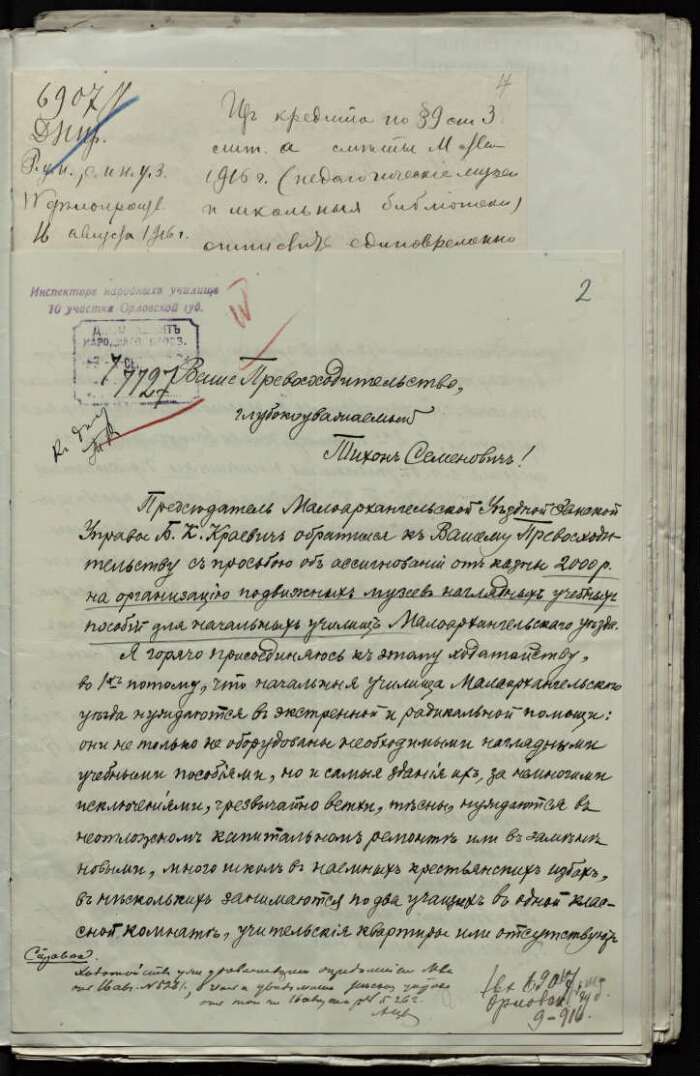 4
6907
Из кредита по § 9 ст. 3
лит. а сметы М
1916 г. (педагогическіе музеи
и школьныя библіотеки)
единовременно
августа 1916 г.
2
Инспекторъ народныхъ училищъ
10 участка Орловской губ.
7727
Ваше Превосходительство,
глубокоуважаемый
Тихонъ Семеновичъ!
Предсѣдатель Малоархангельской Уѣздной Земской
Управы Б. К. Краевичъ обратился къ Вашему Превосходи-
тельству съ просьбою объ ассигнованіи отъ казны 2000 р.
на организацію подвижныхъ музеевъ наглядныхъ учебныхъ
пособій для начальныхъ училищъ Малоархангельскаго уѣзда.
Я горячо присоединяюсь къ этому ходатайству,
во 1хъ потому, что начальныя училища Малоархангельскаго
уѣзда нуждаются въ экстренной и радикальной помощи:
они не только не оборудованы необходимыми наглядными
учебными пособіями, но и самыя зданія ихъ, за немногими
исключеніями, чрезвычайно ветхи, тѣсны, нуждаются въ
неотложномъ капитальномъ ремонтѣ или въ замѣнѣ
новыми, много школъ въ наемныхъ крестьянскихъ избахъ,
въ нѣсколькихъ занимаются по два учащихъ въ одной клас-
сной комнатѣ, учительскія квартиры или отсутствуютъ
Справка.
Орловск. губ.
9-916